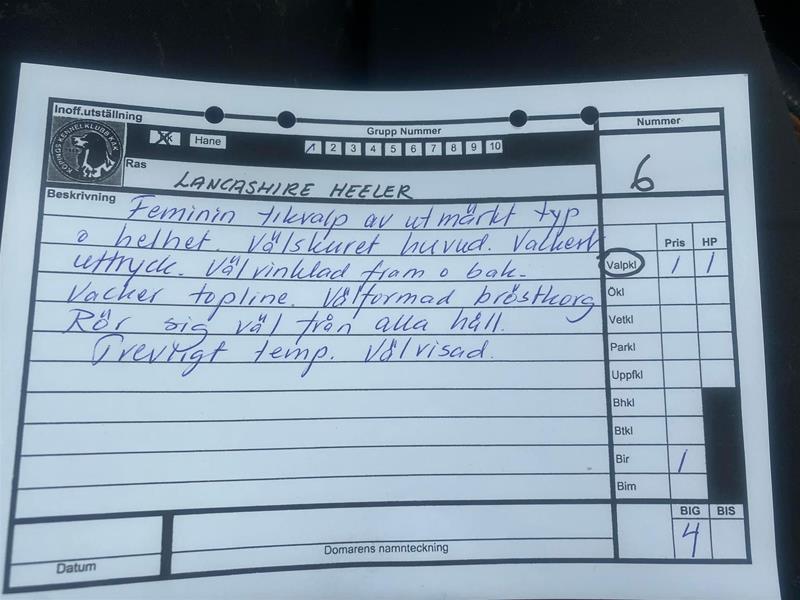 Inoff.utställning
Grupp Nummer
Nummer
Tik Hane
1 2 3 4 5 6 7 8 9 10
KÖPINGS KENNELKLUBB KÖK
Ras
LANCASHIRE HEELER
6
Beskrivning
Feminin tikvalp av utmärkt typ
o helhet. Välskuret huvud. Vackert
uttryck. Välvinklad fram o bak.
Vacker topline. Välformad bröstkorg
Rör sig väl från alla håll.
Trevligt temp. Välvisad.
Pris HP
Valpkl 1 1
Ökl
Vetkl
Parkl
Uppfkl
Bhkl
Btkl
Bir 1
Bim
BIG BIS
4
Datum
Domarens namnteckning